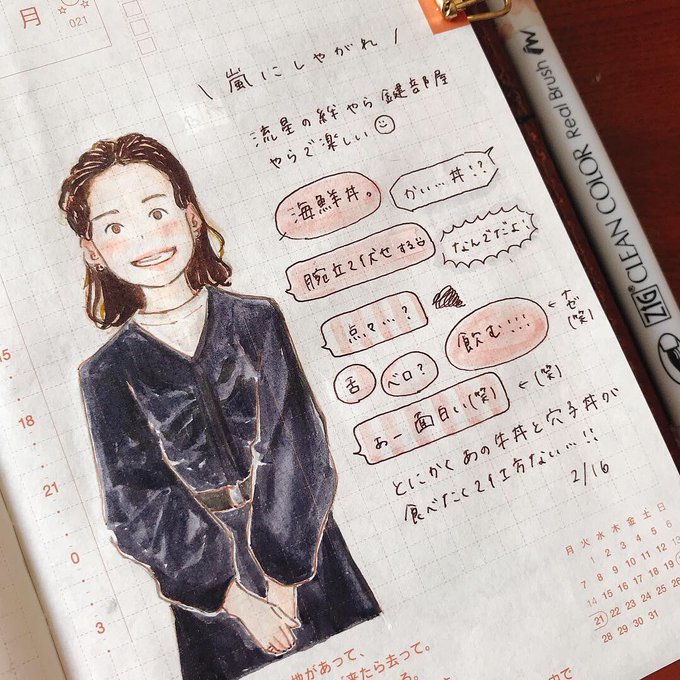 月
021
\ 嵐にしやがれ /
流星の絆やら鍵部屋
やらで楽しい
海鮮丼。
かい…丼!?
腕立て1だせする
なんでだよ!
点々…?
飲む!!!
← なぜ(笑)
舌
ベロ?
あー面白い(笑)
← (笑)
とにかくあの牛丼と穴子丼が
食べたくて仕方ない…!!
2/16
15
18
21
0
3
月 火 水 木 金 土 日
1 2 3 4 5 6
7 8 9 10 11 12 13
14 15 16 17 18 19
21 22 23 24 25 26
28 29 30 31
地があって、
来たら去って。
ZIG CLEAN COLOR Real Brush